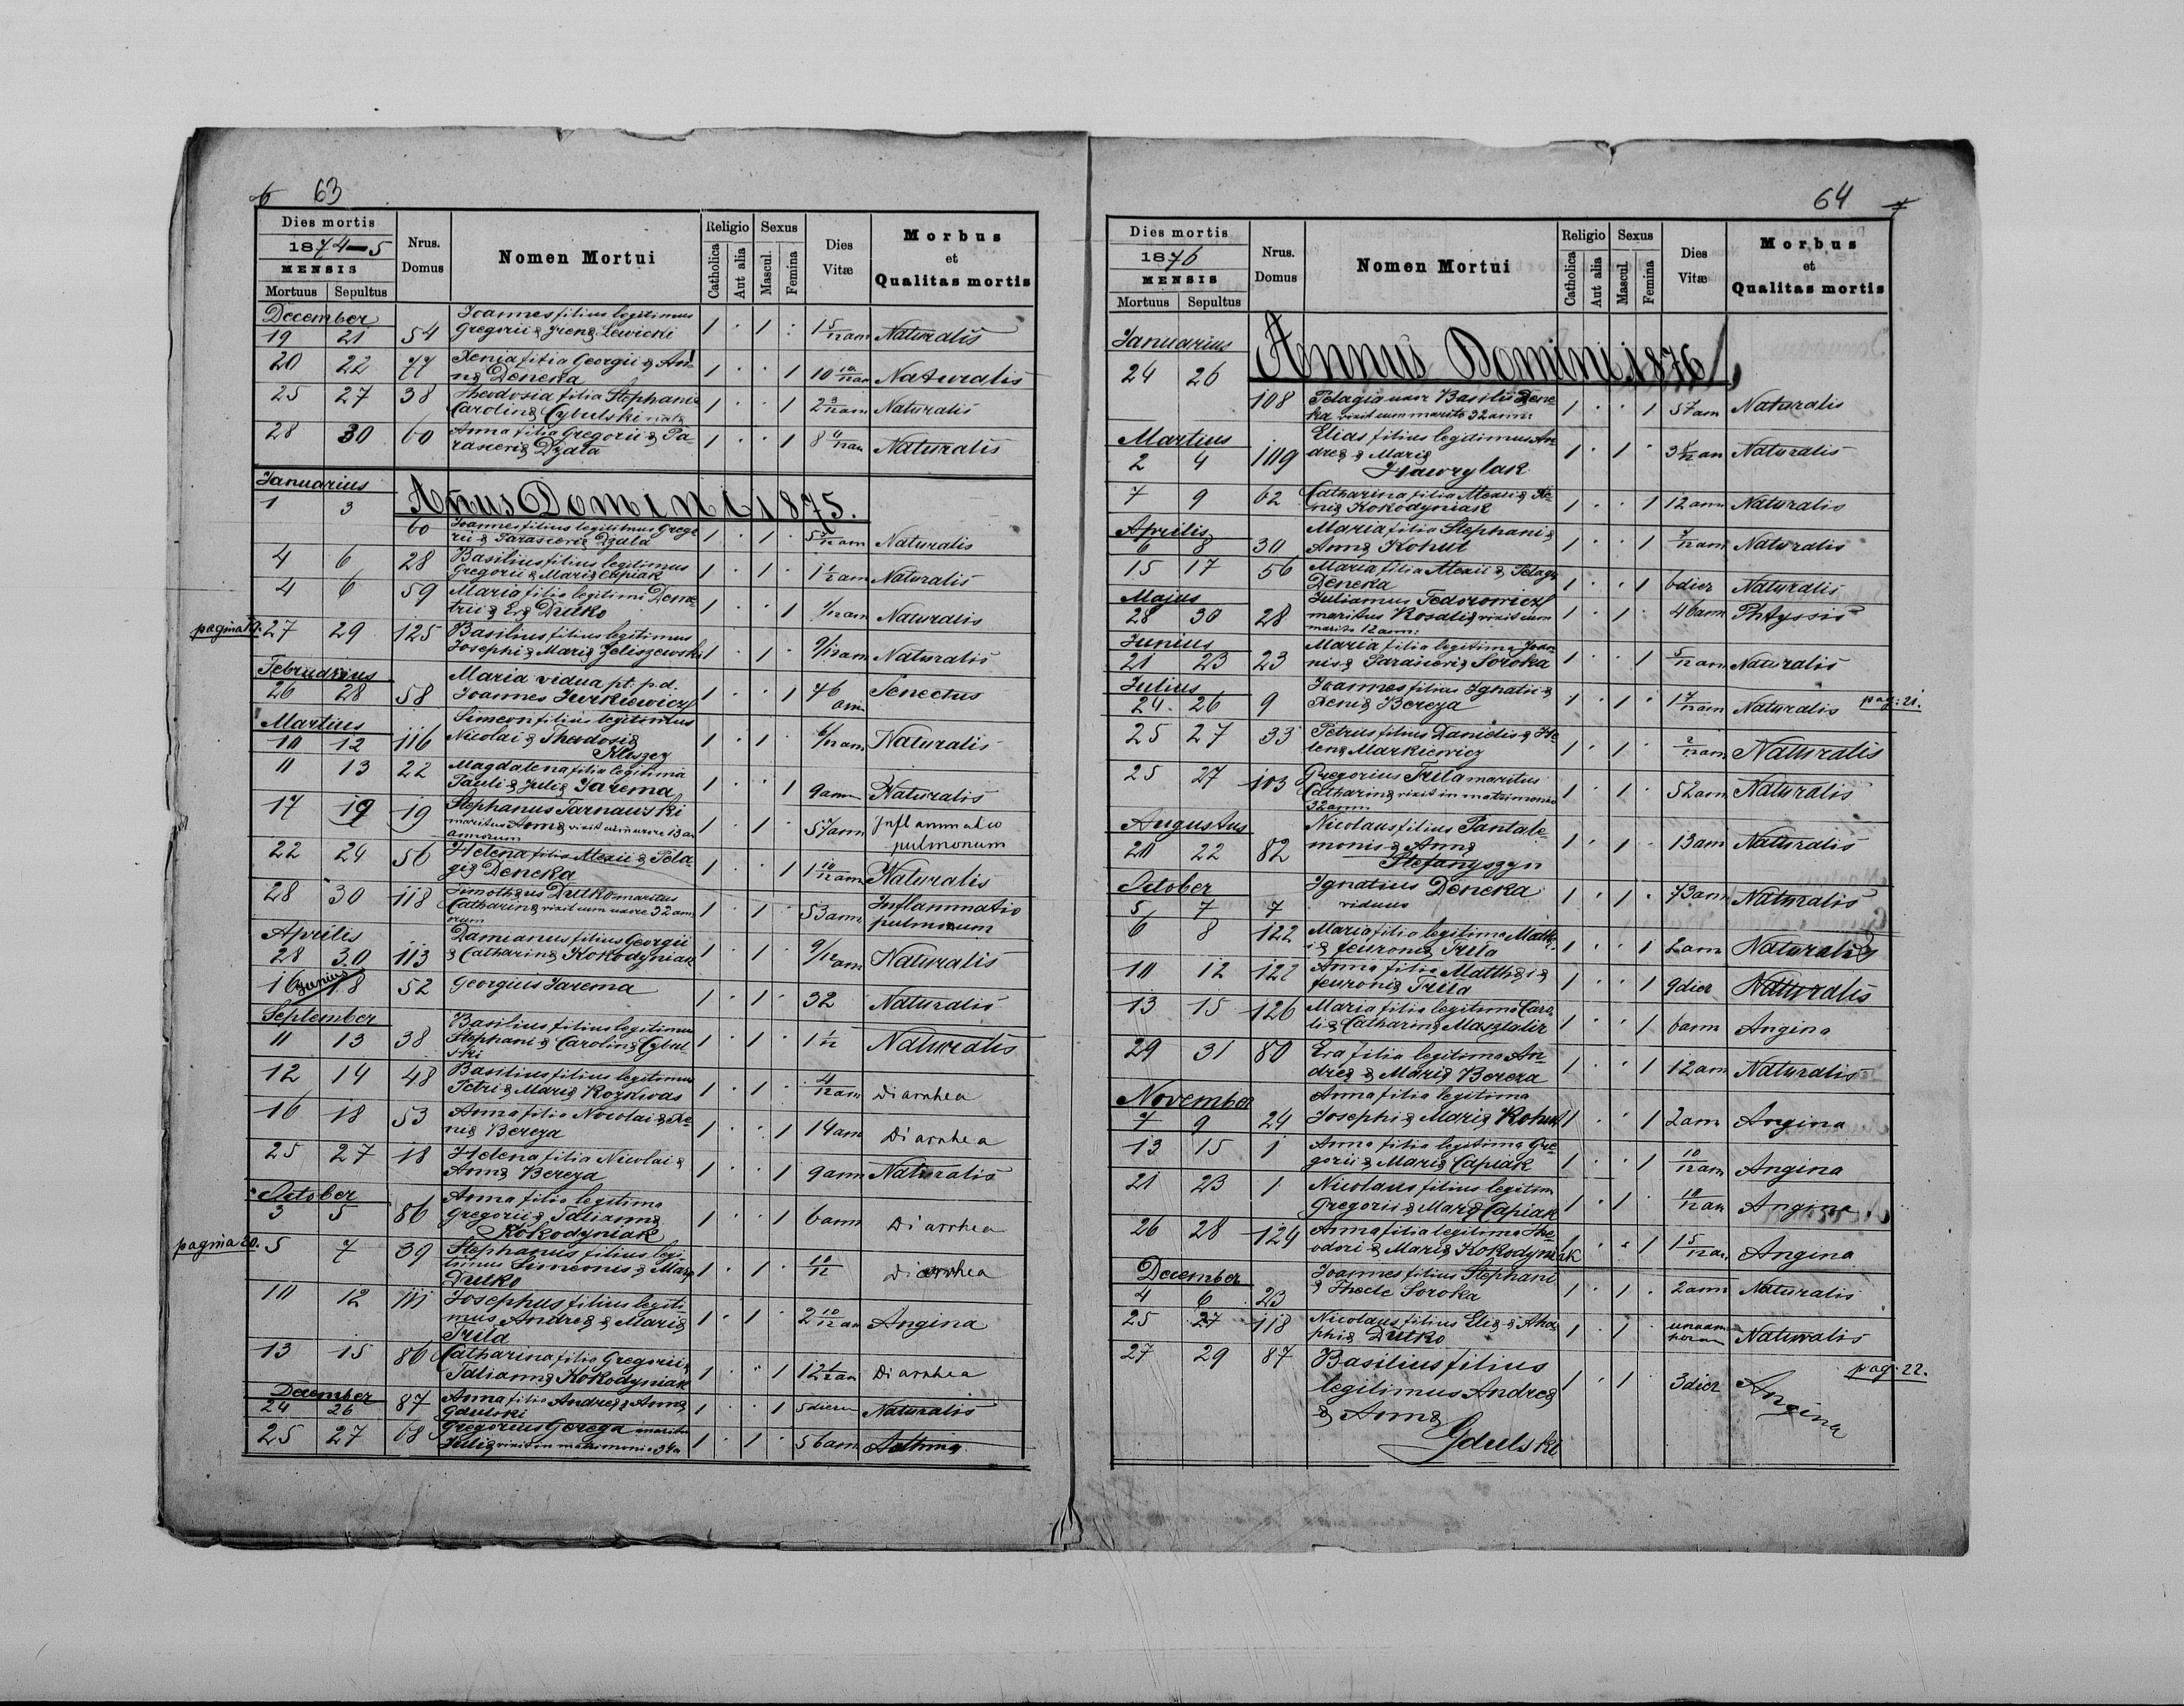 6 63
Dies mortis
1874-5
MENSIS
Mortuus Sepultus
Nrus. Domus
Nomen Mortui
Religio
Catholica Aut alia
Sexus
Mascul. Femina
Dies Vitæ
Morbus et Qualitas mortis
December
Joannes filius legitimus
19 21 54 Gregorii & Irenę Lewicki 1 . 1 . 1 5/12 ann Naturalis
20 22 77 Xenia filia Georgii & An
nę Deneka 1 . . 1 10 10/12 an Naturalis
25 27 38 Theodosia filia Stephani &
Carolinę Cybulski 1 . . 1 2 3/12 am Naturalis
28 30 60 Anna filia Gregorii & Pa-
rascevię Dzala 1 . . 1 8 4/12 an Naturalis
Januarius
Anus Domini 1875.
1 3 60 Joannes filius legitimus Grego
rii & Parascevię Dzala 1 . 1 . 5 /12 am Naturalis
4 6 28 Basilius filius legitimus
Gregorii & Marię Capiak 1 . 1 . 1 1/2 am Naturalis
4 6 59 Maria filia legitimi Deme
trii & Evę Dutko 1 . . 1 1/12 am Naturalis
pagina 19. 27 29 125 Basilius filius legitimus
Josephi & Marię Zeliszewski 1 . 1 . 9/12 am Naturalis
Februarius
Maria vidua pt. p.d.
26 28 58 Joannes Jurkiewicz 1 . . 1 76 ann Senectus
Martius
Simeon filius legitimus
10 12 116 Nicolai & Theodosię
Kluszcz 1 . 1 . 6/12 am Naturalis
11 13 22 Magdalena filia legitima
Pauli & Julię Jarema 1 . . 1 9 ann Naturalis
17 19 19 Stephanus Tarnawski
maritus Annę vixit cum uxore 13 an
annorum 1 . 1 . 57 ann Inflammatio
pulmonum
22 24 56 Helena filia Alexii & Pela
gię Deneka 1 . . 1 1 10/12 ann Naturalis
28 30 118 Timotheus Dutko maritus
Catharinę vixit cum uxore 32 ann
orum 1 . 1 . 53 ann Inflammatio
pulmonum
Aprilis
Damianus filius Georgii
28 30 113 & Catharinę Kokodyniak 1 . 1 . 9/12 am Naturalis
Junius
16 18 52 Georgius Jarema 1 . 1 . 32 Naturalis
September
Basilius filius legitimus
11 13 38 Stephani & Carolinę Cybul-
ski 1 . 1 . 1 1/12 Naturalis
12 14 48 Basilius filius legitimus
Petri & Marię Rozkwas 1 . 1 . 4/12 am Diarrhea
16 18 53 Anna filia Nicolai & Xe
nię Bereza 1 . . 1 14 am Diarrhea
25 27 18 Helena filia Nicolai &
Annę Bereza 1 . . 1 9 ann Naturalis
October
Anna filia legitima
3 5 86 Gregorii & Talianną
Kokodyniak 1 . . 1 6 ann Diarrhea
pagina 20. 5 7 39 Stephanus filius legi
timus Simeonis & Marię
Dutko 1 . 1 . 10/12 Diarrhea
10 12 111 Josephus filius legiti
mus Andreę & Marię
Trila 1 . 1 . 2 10/12 an Angina
13 15 86 Catharina filia Gregorii &
Taliannę Kokodyniak 1 . . 1 12 1/2 an Diarrhea
December
24 26 87 Anna filia Andreę & Annę
Gdulski 1 . . 1 5 dierum Naturalis
25 27 68 Gregorius Gerega maritus
Julię vixit in matrimonio 34 a 1 . 1 . 56 ann Asthma
64 7
Dies mortis
1876
MENSIS
Mortuus Sepultus
Nrus. Domus
Nomen Mortui
Religio
Catholica Aut alia
Sexus
Mascul. Femina
Dies Vitæ
Morbus et Qualitas mortis
Januarius
Annus Domini 1876
24 26 108 Pelagia uxor Basilii Dene
ka vixit cum marito 32 ann: 1 . . 1 57 am Naturalis
Martius
Elias filius legitimus An
2 4 109 dreę & Marię
Hawrylak 1 . 1 . 3 /12 an Naturalis
7 9 62 Catharina filia Alexii & Xe
nię Kokodyniak 1 . . 1 12 ann Naturalis
Aprilis
Maria filia Stephani &
6 8 30 Annę Kohut 1 . . 1 7/12 am Naturalis
15 17 56 Maria filia Alexii & Pelagę
Deneka 1 . . 1 6 dier Naturalis
Majus
Julianus Fedorowicz
28 30 28 maritus Rosalię vixit cum
marito 12 ann: 1 . 1 . 46 ann Phtyssis
Junius
Maria filia legitima Joan
21 23 23 nis & Parascevię Soroka 1 . . 1 5/12 am Naturalis
Julius
Joannes filius Ignatii &
24 26 9 Xenię Bereza 1 . 1 . 1 7/12 am Naturalis pag: 21.
25 27 33 Petrus filius Danielis & He
lenę Markiewicz 1 . 1 . 2/12 am Naturalis
25 27 103 Gregorius Trila maritus
Catharinę vixit in matrimonio
32 ann 1 . 1 . 52 am Naturalis
Augustus
Nicolaus filius Pantale
20 22 82 monis & Annę
Stefanyszyn 1 . 1 . 13 am Naturalis
October
Ignatius Deneka
5 7 7 viduus 1 . 1 . 73 ann Naturalis
6 8 122 Maria filia legitima Matth
i & feuronię Trila 1 . . 1 2 am Naturalis
10 12 122 Anna filia Matthęi &
feuronię Trila 1 . . 1 9 dier Naturalis
13 15 126 Maria filia legitima Caro
li & Catharinę Masztalir 1 . . 1 6 ann Angina
29 31 80 Eva filia legitima An
dreę & Marię Bereza 1 . . 1 12 am Naturalis
November
Anna filia legitima
7 9 24 Josephi & Marię Kohut 1 . . 1 2 am Angina
13 15 1 Anna filia legitima Gre
gorii & Marię Capiak 1 . . 1 10/12 am Angina
21 23 1 Nicolaus filius legitim
Gregorii & Marę Capiak 1 . 1 . 10/12 an Angina
26 28 124 Anna filia legitima The
odori & Marię Kokodyniak 1 . . 1 1 5/12 an Angina
December
Joannes filius Stephani
4 6 23 & Thecle Soroka 1 . 1 . 2 ann Naturalis
25 27 118 Nicolaus filius Elię & Aha
phię Dutko 1 . 1 unnam
horam Naturalis
27 29 87 Basilius filius
legitimus Andreę
& Annę
Gdulski 1 . 1 3 dier Angina pag: 22.